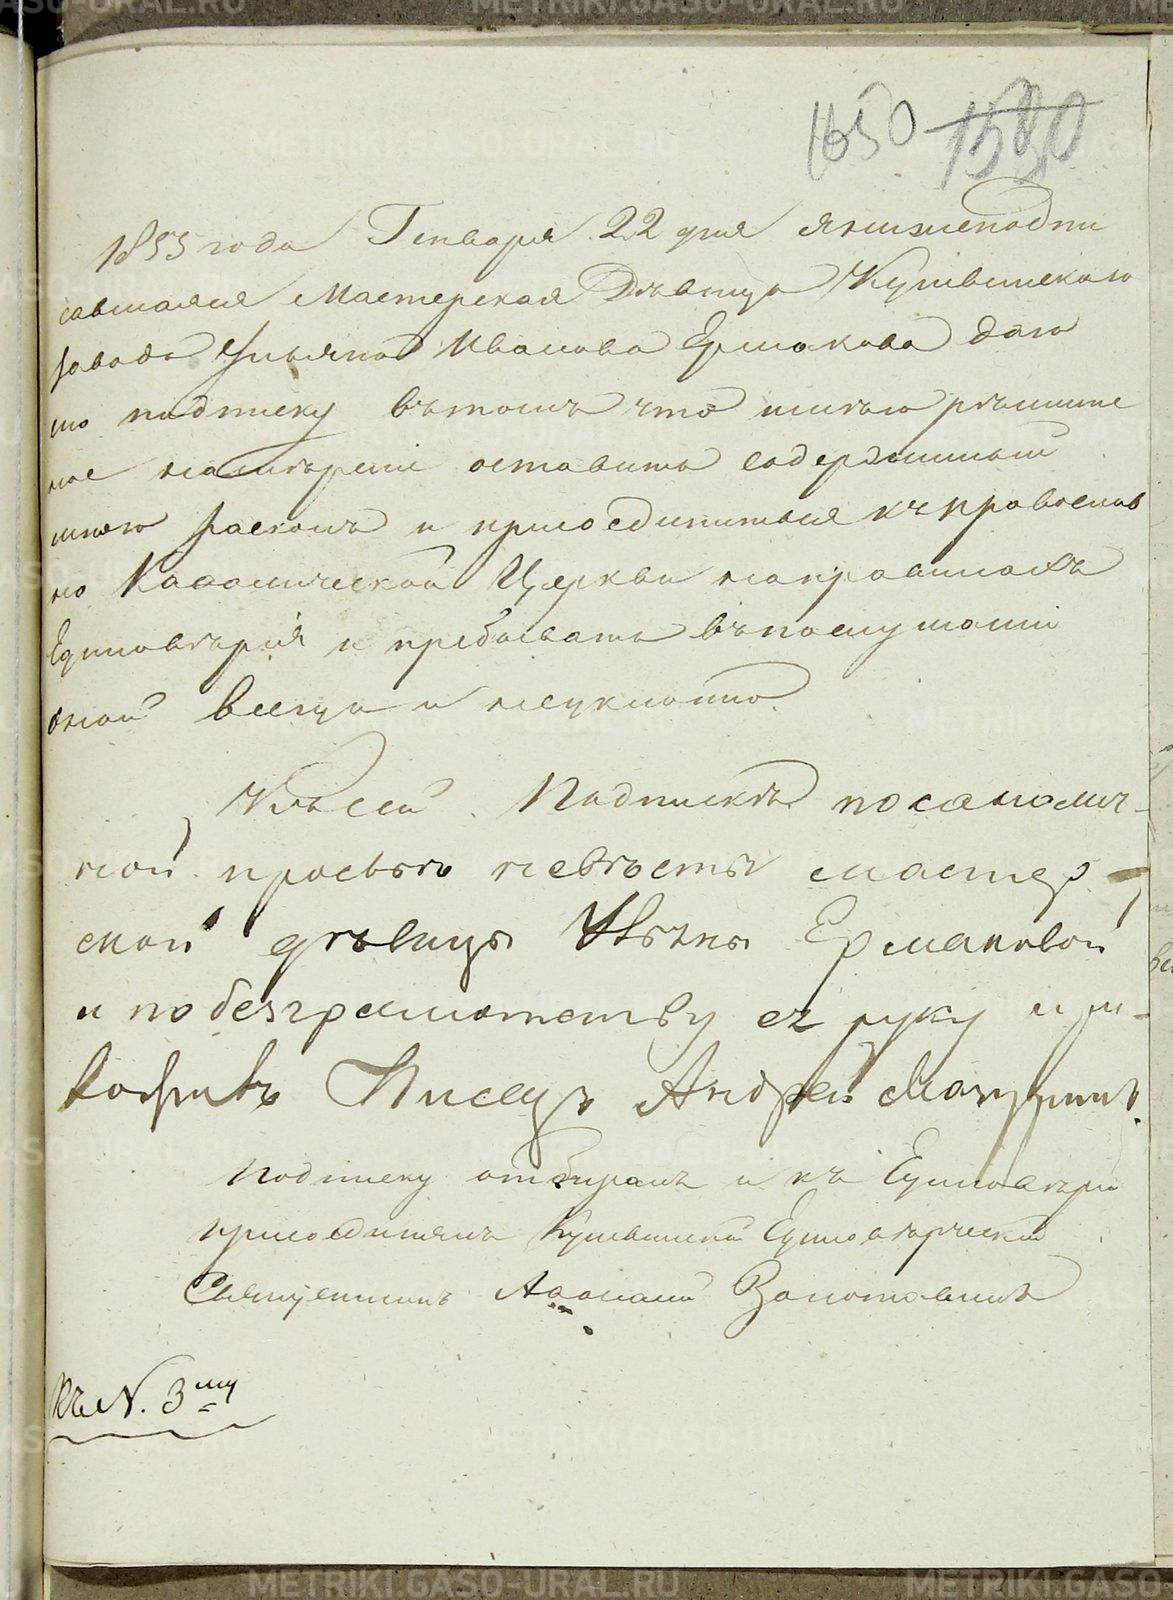 1650 1580
1853 года Генваря 22 дня я нижеподпи
савшаяся Мастерская Дѣвица Кушвинскаго
завода Ульяна Иванова Ермакова даю
сію подписку въ томъ что имѣю рѣшитель
ное намѣреніе оставить содержимый
мною расколъ и присоединиться къ православ
но Каѳолической Церкви на правилахъ
Единовѣрія и пребывать въ послушаніи
оной всегда и неуклонно.
Къ сей Подпискѣ по самолич-
ной прозьбѣ невѣсты мастер-
ской дѣвицы Ульяны Ермаковой
и по безграмотству ея руку и ри-
Писецъ Андрей
Подписку отбиралъ и къ Единовѣрію
присоединялъ Кушвинскій Единовѣрческій
Священникъ Аѳанасій
Къ N. 3му